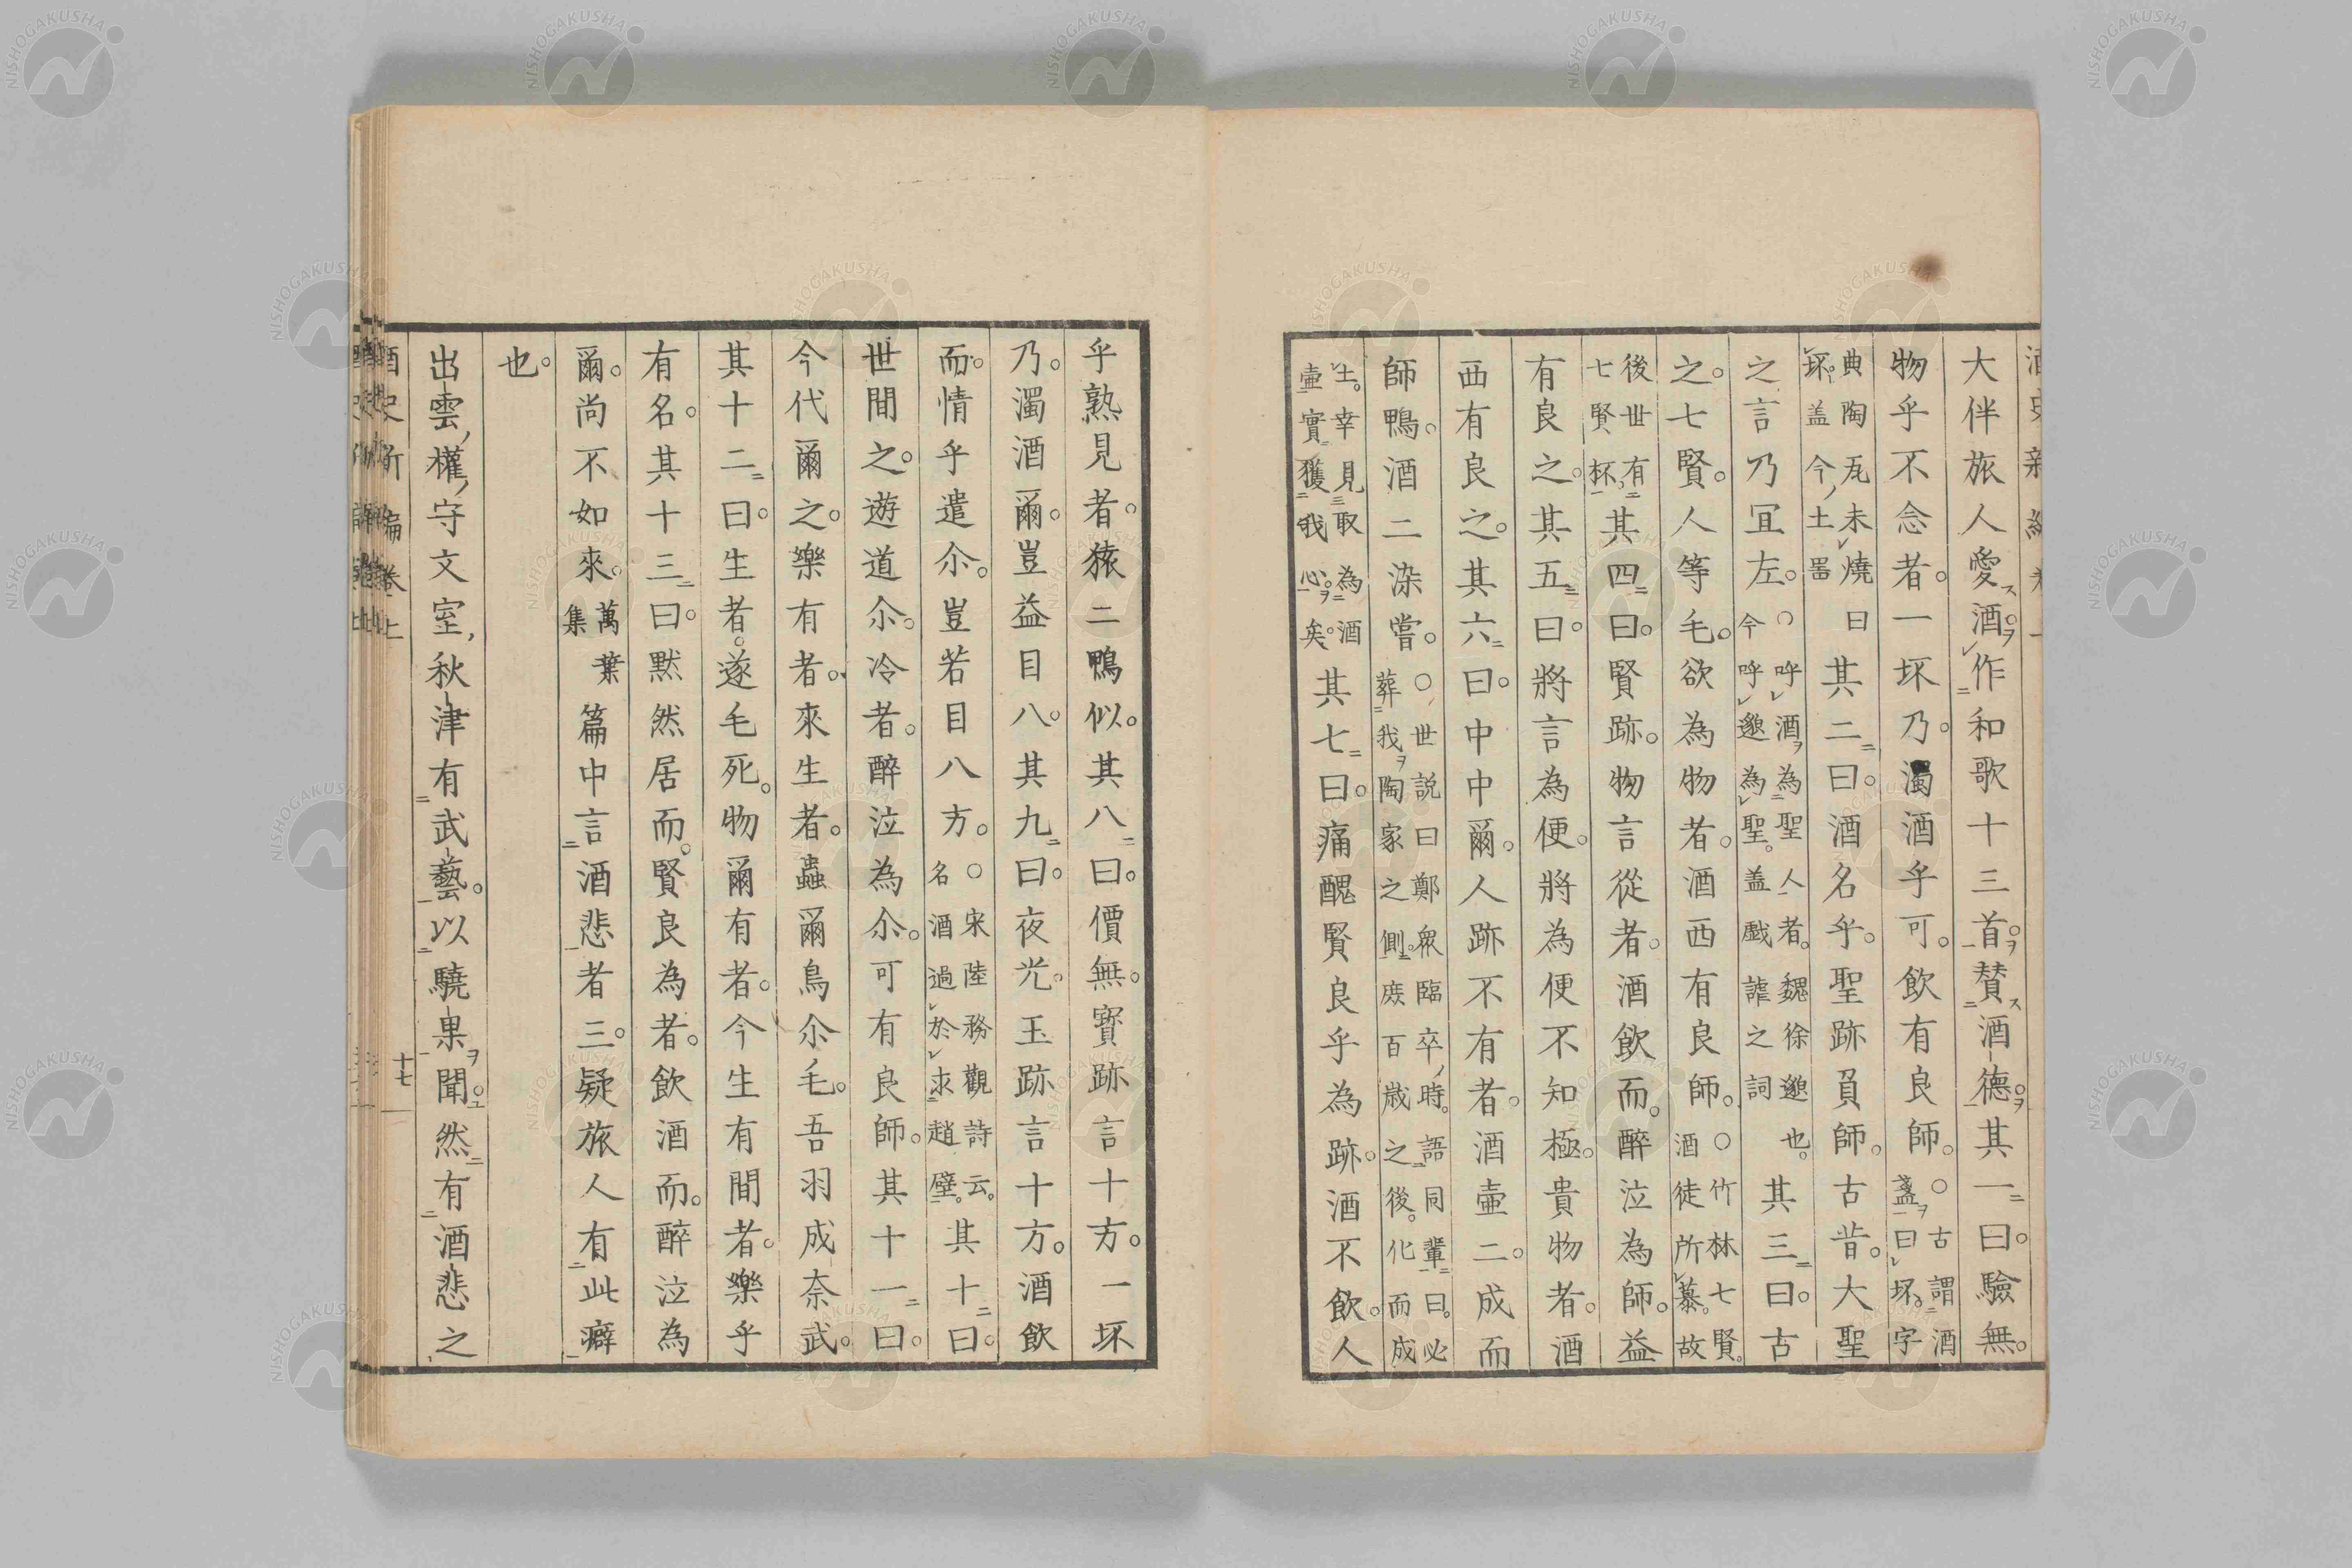 大伴旅人愛酒。作和歌十三首。賛酒德。其一曰。驗無。
物乎不念者。一坏乃。濁酒乎可。飲有良師。○古謂酒
盞曰坏。字
典陶瓦未燒曰
坏。盖今土噐其二曰。酒名乎。聖跡負師。古昔。大聖
之言乃冝左。○呼酒為聖人者。魏徐邈也。
今呼邈為聖。盖戲謔之詞其三曰。古
之。七賢。人等毛。欲為物者。酒西有良師。○竹林七賢。
酒徒所慕。故
後世有
七賢杯其四曰。賢跡。物言從者。酒飲而。醉泣為師。益
有良之。其五曰。將言為便。將為便不知極。貴物者。酒
西有良之。其六曰。中中爾。人跡不有者。酒壷二。成而
師鴨。酒二染嘗。○世説曰鄭衆臨卒時。語同輩曰。必
葬我陶家之側。庻百歳之後。化而成
土。幸見取為酒
壷實獲我心。矣。其七曰。痛醜賢良乎為跡。酒不飲。人
乎熟見者。猿二鴨似。其八曰。價無。寳跡言十方。一坏
乃。濁酒爾。豈益目八。其九曰。夜光。玉跡言十方。酒飲
而。情乎遣尒。豈若目八方。○宋陸務觀詩云。
名酒過於求趙璧。其十曰。
世間之。遊道尒。冷者。醉泣為尒。可有良師。其十一曰。
今代爾之。樂有者。來生者。蟲爾鳥尒毛。吾羽成奈武。
其十二曰。生者。遂毛死。物爾有者。今生有間者。樂乎
有名。其十三曰。默然居而。賢良為者。飲酒而。醉泣為
爾。尚不如來。萬葉
集篇中言酒悲者三。疑旅人有此癖
也。
出雲權守文室秋津有武藝。以驍果聞。然有酒悲之
酒史新編卷上 十七